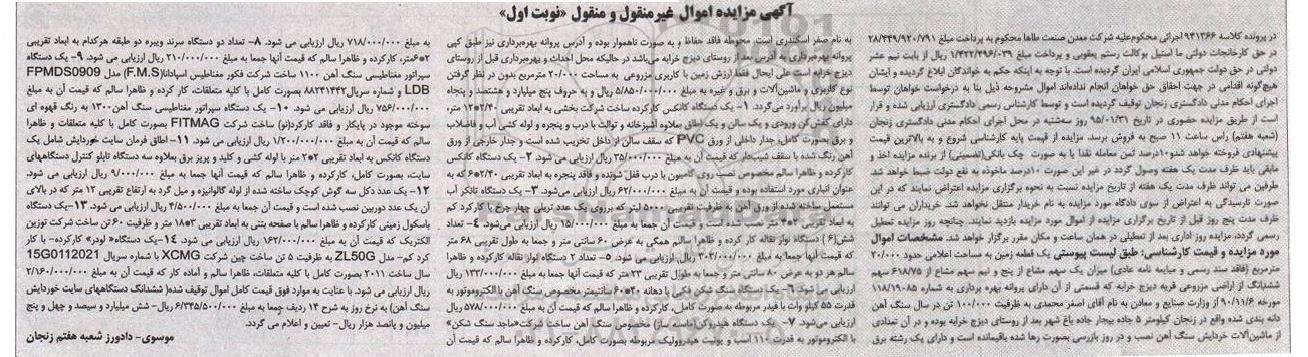 آگهی مزایده اموال غیرمنقول و منقول «نوبت اول»
در پرونده کلاسه ۹۴۱۳۶۶ اجرائی محکوم‌علیه شرکت معدن صنعت طاها محکوم به پرداخت مبلغ ۲۸/۴۴۹/۹۲۰/۷۹۱
در حق کارخانجات دولتی ما استیل بوکالت رستم یعقوبی و پرداخت مبلغ ۱/۴۲۲/۴۹۶/۰۳۹ ریال از بابت نیم عشر
دولتی در حق دولت جمهوری اسلامی ایران گردیده است. با توجه به اینکه حکم به خواندگان ابلاغ گردیده و ایشان
هیچ‌گونه اقدامی در جهت احقاق حق خواهان انجام نداده‌اند اموال مشروحه ذیل بنا به درخواست خواهان توسط
اجرای احکام مدنی دادگستری زنجان توقیف گردیده است و توسط کارشناس رسمی دادگستری ارزیابی شده و قرار
است از طریق مزایده حضوری در تاریخ ۹۵/۰۱/۳۱ روز سه‌شنبه در محل اجرای احکام مدنی دادگستری زنجان
(شعبه هفتم) راس ساعت ۱۱ صبح به فروش برسد. مزایده از قیمت پایه کارشناسی شروع و به بالاترین قیمت
پیشنهادی فروخته خواهد شد۱۰درصد ثمن معامله نقدا یا به صورت چک بانکی(تضمینی) از برنده مزایده اخذ و
مابقی باید ظرف مدت یک هفته وصول گردد در غیر این صورت ۱۰درصد ماخوذه به نفع دولت ضبط خواهد شد.
طرفین می توانند ظرف مدت یک هفته از تاریخ مزایده نسبت به نحوه برگزاری مزایده اعتراض نمایند که در این
صورت تارسیدگی به اعتراض از سوی دادگاه مورد مزایده به نام خریدار منتقل نخواهد شد. خریداران می توانند
ظرف مدت پنج روز قبل از تاریخ برگزاری مزایده از اموال مورد مزایده بازدید نمایند. چنانچه روز مزایده تعطیل
رسمی گردد، مزایده روز اداری بعد از تعطیلی در همان ساعت و مکان مقرر برگزار خواهد شد. مشخصات اموال
مورد مزایده و قیمت کارشناسی: طبق لیست پیوستی یک قطعه زمین به مساحت اعلامی حدود ۲۰/۰۰۰
مترمربع (فاقد سند رسمی و مبایعه نامه عادی) میزان یک سهم مشاع از پنج و نیم سهم مشاع از ۶۱۸/۷۵ سهم
ششدانگ از اراضی مزروعی قریه دیزج خرابه که قسمتی از آن دارای پروانه بهره برداری به شماره ۱۱۸/۱۹۰۸۵
مورخه ۹۰/۱۱/۶ از وزارت صنایع و معادن به نام آقای اصغر محمدی به ظرفیت ۱۰۰/۰۰۰ تن در سال سنگ آهن
دانه بندی شده واقع در زنجان کیلومتر ۵ جاده بیجار جاده باغ شهر بعد از روستای دیزج خرابه بوده و در آن تعدادی
از ماشین‌آلات خردایش سنگ آهن نصب و در روز بازرسی بصورت رها شده باقیمانده است و دارای یک رشته برق
به نام صفر اسکندری است. محوطه فاقد حفاظ و به صورت ناهموار بوده و آدرس پروانه بهره‌برداری نیز طبق کپی
پروانه بهره‌برداری به آدرس بعد از روستای دیزج خرابه می‌باشد در حالیکه محل احداث و بهره‌برداری قبل از روستای
دیزج خرابه است علی ایحال فقط ارزش زمین با کاربری مزروعی به مساحت ۲۰/۰۰۰ مترمربع بدون در نظر گرفتن
نوع کاربری و ماشین‌آلات و برق و غیره به مبلغ ۵/۸۵۰/۰۰۰/۰۰۰ ریال و به حروف پنج میلیارد و هشتصد و پنجاه
میلیون ریال برآورد می‌گردد. ۱- یک دستگاه کانکس کارکرده ساخت شرکت بخشی به ابعاد تقریبی ۲/۴۰*۱۲ متر،
دارای کفش‌کن ورودی و یک سالن و یک اطاق بعلاوه آشپزخانه و توالت با درب و پنجره و لوله کشی آب و فاضلاب
و برق بصورت کامل، جدار داخلی از ورق PVC که سقف سالن از داخل تخریب شده است و جدار خارجی از ورق
آهن رنگ شده با سقف شیب‌دار که قیمت آن به مبلغ ۳۵/۰۰۰/۰۰۰ ریال ارزیابی می شود. ۲- یک دستگاه کانکس
کارکرده و ظاهرا سالم مخصوص نصب روی کامیون با درب قفل شونده و فاقد پنجره به ابعاد تقریبی ۲/۴۰*۶ که به
عنوان انباری مورد استفاده بوده و قیمت آن به مبلغ ۶۲/۰۰۰/۰۰۰ ریال ارزیابی می‌شود. ۳- یک دستگاه تانکر آب
مستعمل ساخته شده از ورق آهن به ظرفیت تقریبی ۵۰۰۰ لیتر که برروی یک عدد تریلی چهار چرخ با کارکرد کم
به ابعاد تقریبی ۲*۴ متر نصب شده است و قیمت آن جمعا به مبلغ ۱۵/۰۰۰/۰۰۰ ریال ارزیابی می‌شود. ۴- تعداد
شش(۶) دستگاه نوار نقاله کار کرده و ظاهرا سالم همگی به عرض ۶۰ سانتی متر و جمعا به طول تقریبی ۶۸ متر
که قیمت آنها جمعا به مبلغ ۳۰۲/۰۰۰/۰۰۰ ریال ارزیابی می شود. ۵- تعداد ۲ دستگاه نوار نقاله کارکرده و ظاهرا
سالم هر دو به عرض ۸۰ سانتی متر و جمعا به طول تقریبی ۲۳متر که قیمت آنها جمعا به مبلغ ۱۳۳/۰۰۰/۰۰۰ ریال
ارزیابی می شود. ۶- یک دستگاه سنگ شکن فکی با دهانه ۴۰*۶۰ سانتیمتر مخصوص سنگ آهن با الکتروموتور به
قدرت ۵۵ کیلو وات با فیدر مربوطه به صورت کامل، کارکرده و ظاهرا سالم که قیمت آن به مبلغ ۵۷۸/۰۰۰/۰۰۰ ریال
ارزیابی می‌شود. ۷- یک دستگاه هیدروکن(ماسه ساز) مخصوص سنگ آهن ساخت شرکت«ماجد سنگ شکن»
با الکتروموتور به قدرت ۱۱۰ اسب و یونیت هیدرولیک مربوطه بصورت کامل، کارکرده و ظاهرا سالم که قیمت آن
به مبلغ ۷۱۸/۰۰۰/۰۰۰ ریال ارزیابی می شود. ۸- تعداد دو دستگاه سرند ویبره دو طبقه هرکدام به ابعاد تقریبی
۲*۶متر، کارکرده و ظاهرا سالم که قیمت آنها جمعا به مبلغ ۲۱۰/۰۰۰/۰۰۰ ریال ارزیابی می شود. ۹- یک دستگاه
سپراتور مغناطیسی سنگ آهن ۱۱۰۰ ساخت شرکت فکور مغناطیس اسپادانا(F.M.S) مدل FPMDS0909
LDB و شماره سریال۸۸۲۳۱۴۴۲ بصورت کامل با کلیه متعلقات، کار کرده و ظاهرا سالم که قیمت آن به مبلغ
۷۵۶/۰۰۰/۰۰۰ ریال ارزیابی می شود. ۱۰- یک دستگاه سپراتور مغناطیسی سنگ آهن۱۳۰۰ به رنگ قهوه ای
سوخته موجود در پایکار و فاقد کارکرد(نو) ساخت شرکت FITMAG بصورت کامل با کلیه متعلقات و ظاهرا
سالم که قیمت آن به مبلغ ۱/۲۰۰/۰۰۰/۰۰۰ ریال ارزیابی می شود. ۱۱- اطاق فرمان سایت خوردایش شامل یک
دستگاه کانکس به ابعاد تقریبی ۲*۲ متر با لوله کشی و کلید و پریز برق بعلاوه سه دستگاه تابلو کنترل دستگاههای
سایت، بصورت کامل، کارکرده و ظاهرا سالم که قیمت آنها جمعا به مبلغ ۹/۰۰۰/۰۰۰ ریال ارزیابی می شود.
۱۲- یک عدد دکل سه گوش کوچک ساخته شده از لوله گالوانیزه و میل گرد به ارتفاع تقریبی ۱۲ متر که در بالای
آن یک عدد دوربین نصب شده است و قیمت آن جمعا به مبلغ ۴/۵۰۰/۰۰۰ ریال ارزیابی می شود. ۱۳-یک دستگاه
باسکول زمینی کارکرده و ظاهرا سالم با صفحه بتنی به ابعاد تقریبی ۳*۱۸ متر و ظرفیت ۶۰ تن ساخت شرکت توزین
الکتریک که قیمت آن به مبلغ ۱۶۲/۰۰۰/۰۰۰ ریال ارزیابی می شود. ۱۴-یک دستگاه« لودر» کارکرده- با کار
کرد کم- مدل ZL50G به ظرفیت ۵ تن ساخت چین شرکت XCMG با شماره سریال 15G0112021
سال ساخت ۲۰۱۱ بصورت کامل با کلیه متعلقات، ظاهرا سالم و آماده کار که قیمت آن به مبلغ ۲/۱۶۰/۰۰۰/۰۰۰
ریال ارزیابی می شود. با عنایت به موارد فوق قیمت کامل اموال توقیف شده( ششدانگ دستگاههای سایت خوردایش
سنگ آهن) به نرخ روز به شرح ۱۴ ردیف جمعا به مبلغ ۶/۳۴۵/۵۰۰/۰۰۰ ریال- شش میلیارد و سیصد و چهل و پنج
میلیون و پانصد هزار ریال- تعیین و اعلام می گردد.
موسوی- دادورز شعبه هفتم زنجان